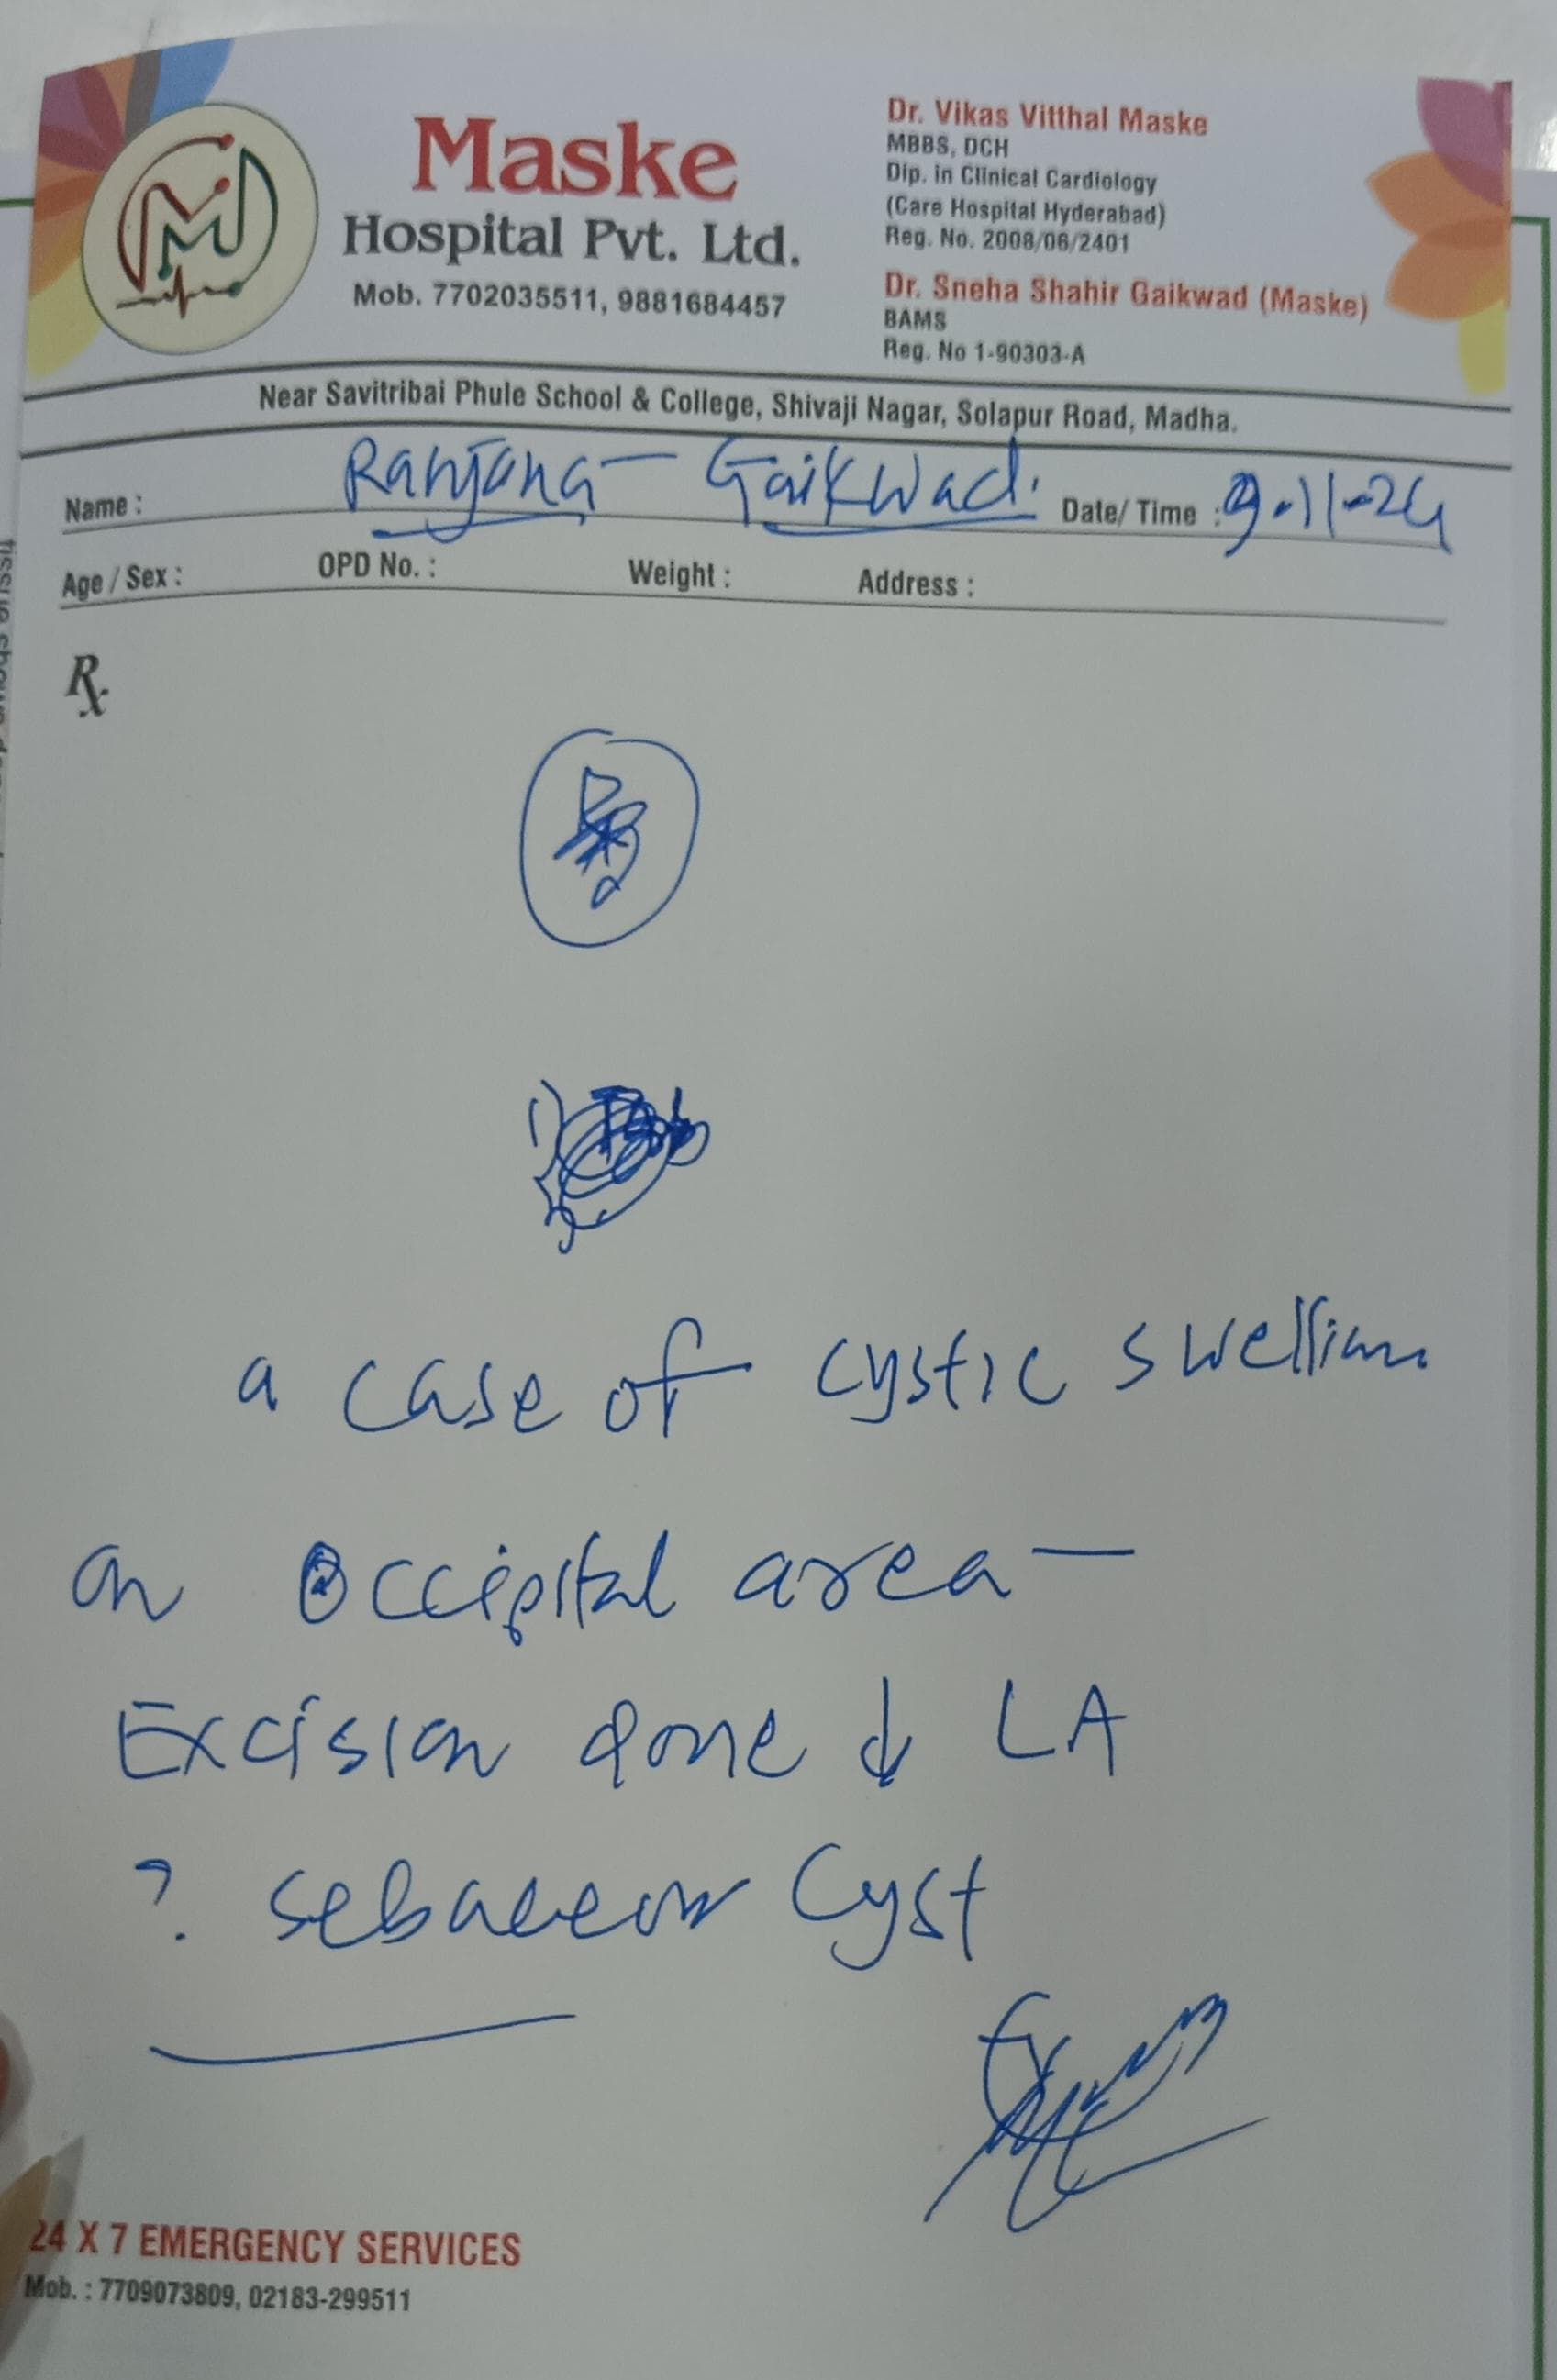 Maske
Hospital Pvt. Ltd.
Mob. 7702035511, 9881684457
Dr. Vikas Vitthal Maske
MBBS, DCH
Dip. in Clinical Cardiology
(Care Hospital Hyderabad)
Reg. No. 2008/06/2401
Dr. Sneha Shahir Gaikwad (Maske)
BAMS
Reg. No 1-90303-A
Near Savitribai Phule School & College, Shivaji Nagar, Solapur Road, Madha.
Name : Ranjana Gaikwad. Date/ Time : 9-11-24
Age / Sex : OPD No. : Weight : Address :
Rx
1)
a case of cystic swelling
on Occipital area —
Excision done ↓ LA
? sebaceous Cyst
24 X 7 EMERGENCY SERVICES
Mob. : 7709073809, 02183-299511